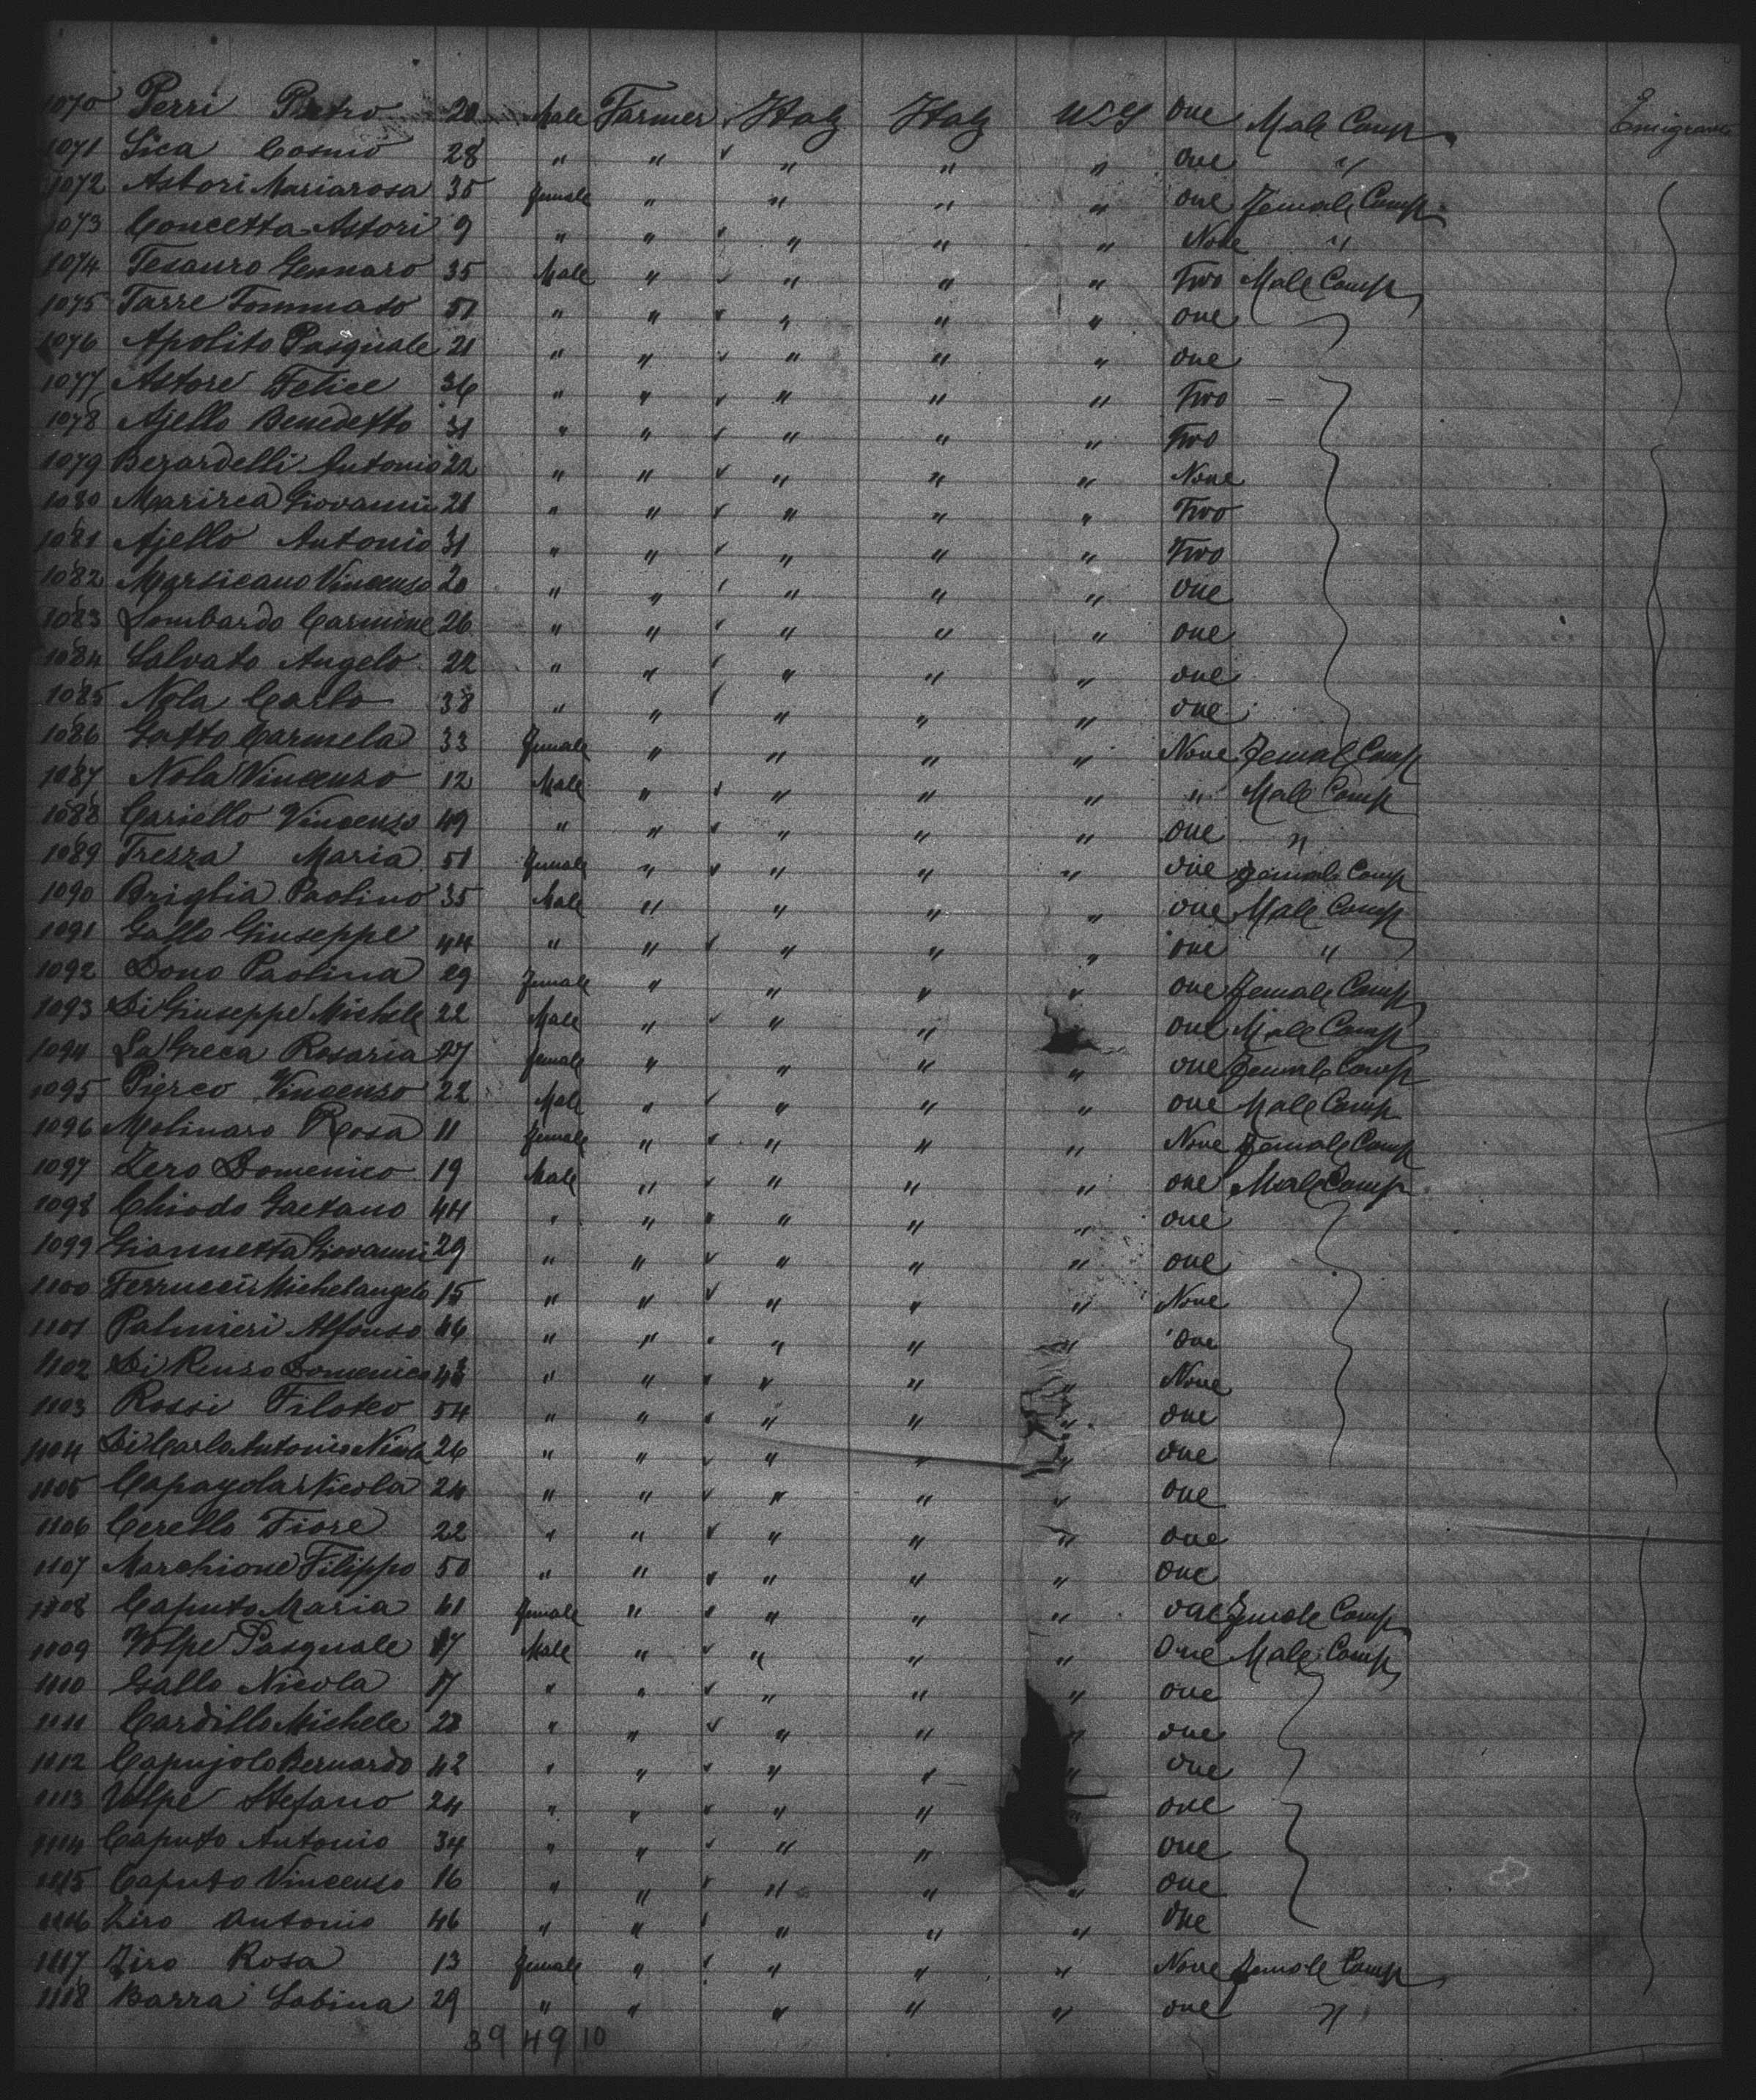 1070 Perri Pietro 20 Male Farmer Italy Italy U.S. One Male Comp Emigrants
1071 Sica Cosmo 28 " " " " " One "
1072 Astori Mariarosa 35 Female " " " " One Female Comp
1073 Concetta Astori 9 " " " " " None "
1074 Tesauro Gennaro 35 Male " " " " Two Male Comp
1075 Tarre Tommaso 51 " " " " " One
1076 Apolito Pasquale 21 " " " " " One
1077 Astore Felice 36 " " " " " Two
1078 Ajello Benedetto 31 " " " " " Two
1079 Berardelli Antonio 22 " " " " " None
1080 Giovanni 21 " " " " " Two
1081 Ajello Antonio 31 " " " " " Two
1082 Marsicano Vincenzo 20 " " " " " One
1083 Lombardo Carmine 26 " " " " " One
1084 Salvato Angelo 22 " " " " " One
1085 Nola Carlo 38 " " " " " One
1086 Gatto Carmela 33 Female " " " " None Female Comp
1087 Nola Vincenzo 12 Male " " " " " Male Comp
1088 Cariello Vincenzo 49 " " " " " One "
1089 Trezza Maria 51 Female " " " " One Female Comp
1090 Briglia Paolino 35 Male " " " " One Male Comp
1091 Gallo Giuseppe 44 " " " " " One "
1092 Bono Paolina 29 Female " " " " One Female Comp
1093 Di Giuseppe Michele 22 Male " " " One Male Comp
1094 La Greca Rosaria 27 Female " " " " One Female Comp
1095 Vincenzo 22 Male " " " " One Male Comp
1096 Molinaro Rosa 11 Female " " " " None Female Comp
1097 Zero Domenico 19 Male " " " " One Male Comp
1098 Chiodo Gaetano 44 " " " " " One
1099 Giannetta Giovanni 29 " " " " " One
1100 Ferrucci Michelangelo 15 " " " " " None
1101 Palmieri Alfonso 46 " " " " " One
1102 Di Renzo Domenico " " " " " None
1103 Rossi Filoteo 54 " " " " " One
1104 Di Carlo Antonio Nicola 26 " " " " " One
1105 Nicola 24 " " " " " One
1106 Cerello Fiore 22 " " " " " One
1107 Marchione Filippo 50 " " " " " One
1108 Caputo Maria 61 Female " " " " One Female Comp
1109 Volpe Pasquale 17 Male " " " " One Male Comp
1110 Gallo Nicola 17 " " " " " One
1111 Cardillo Michele 28 " " " " " One
1112 Bernardo 42 " " " " " One
1113 Volpe Stefano 24 " " " " " One
1114 Caputo Antonio 34 " " " " One
1115 Caputo Vincenzo 16 " " " " " One
1116 Ziro Antonio 46 " " " " " One
1117 Ziro Rosa 13 Female " " " " None Female Comp
1118 Barra Sabina 29 " " " " " One "
39 49 10